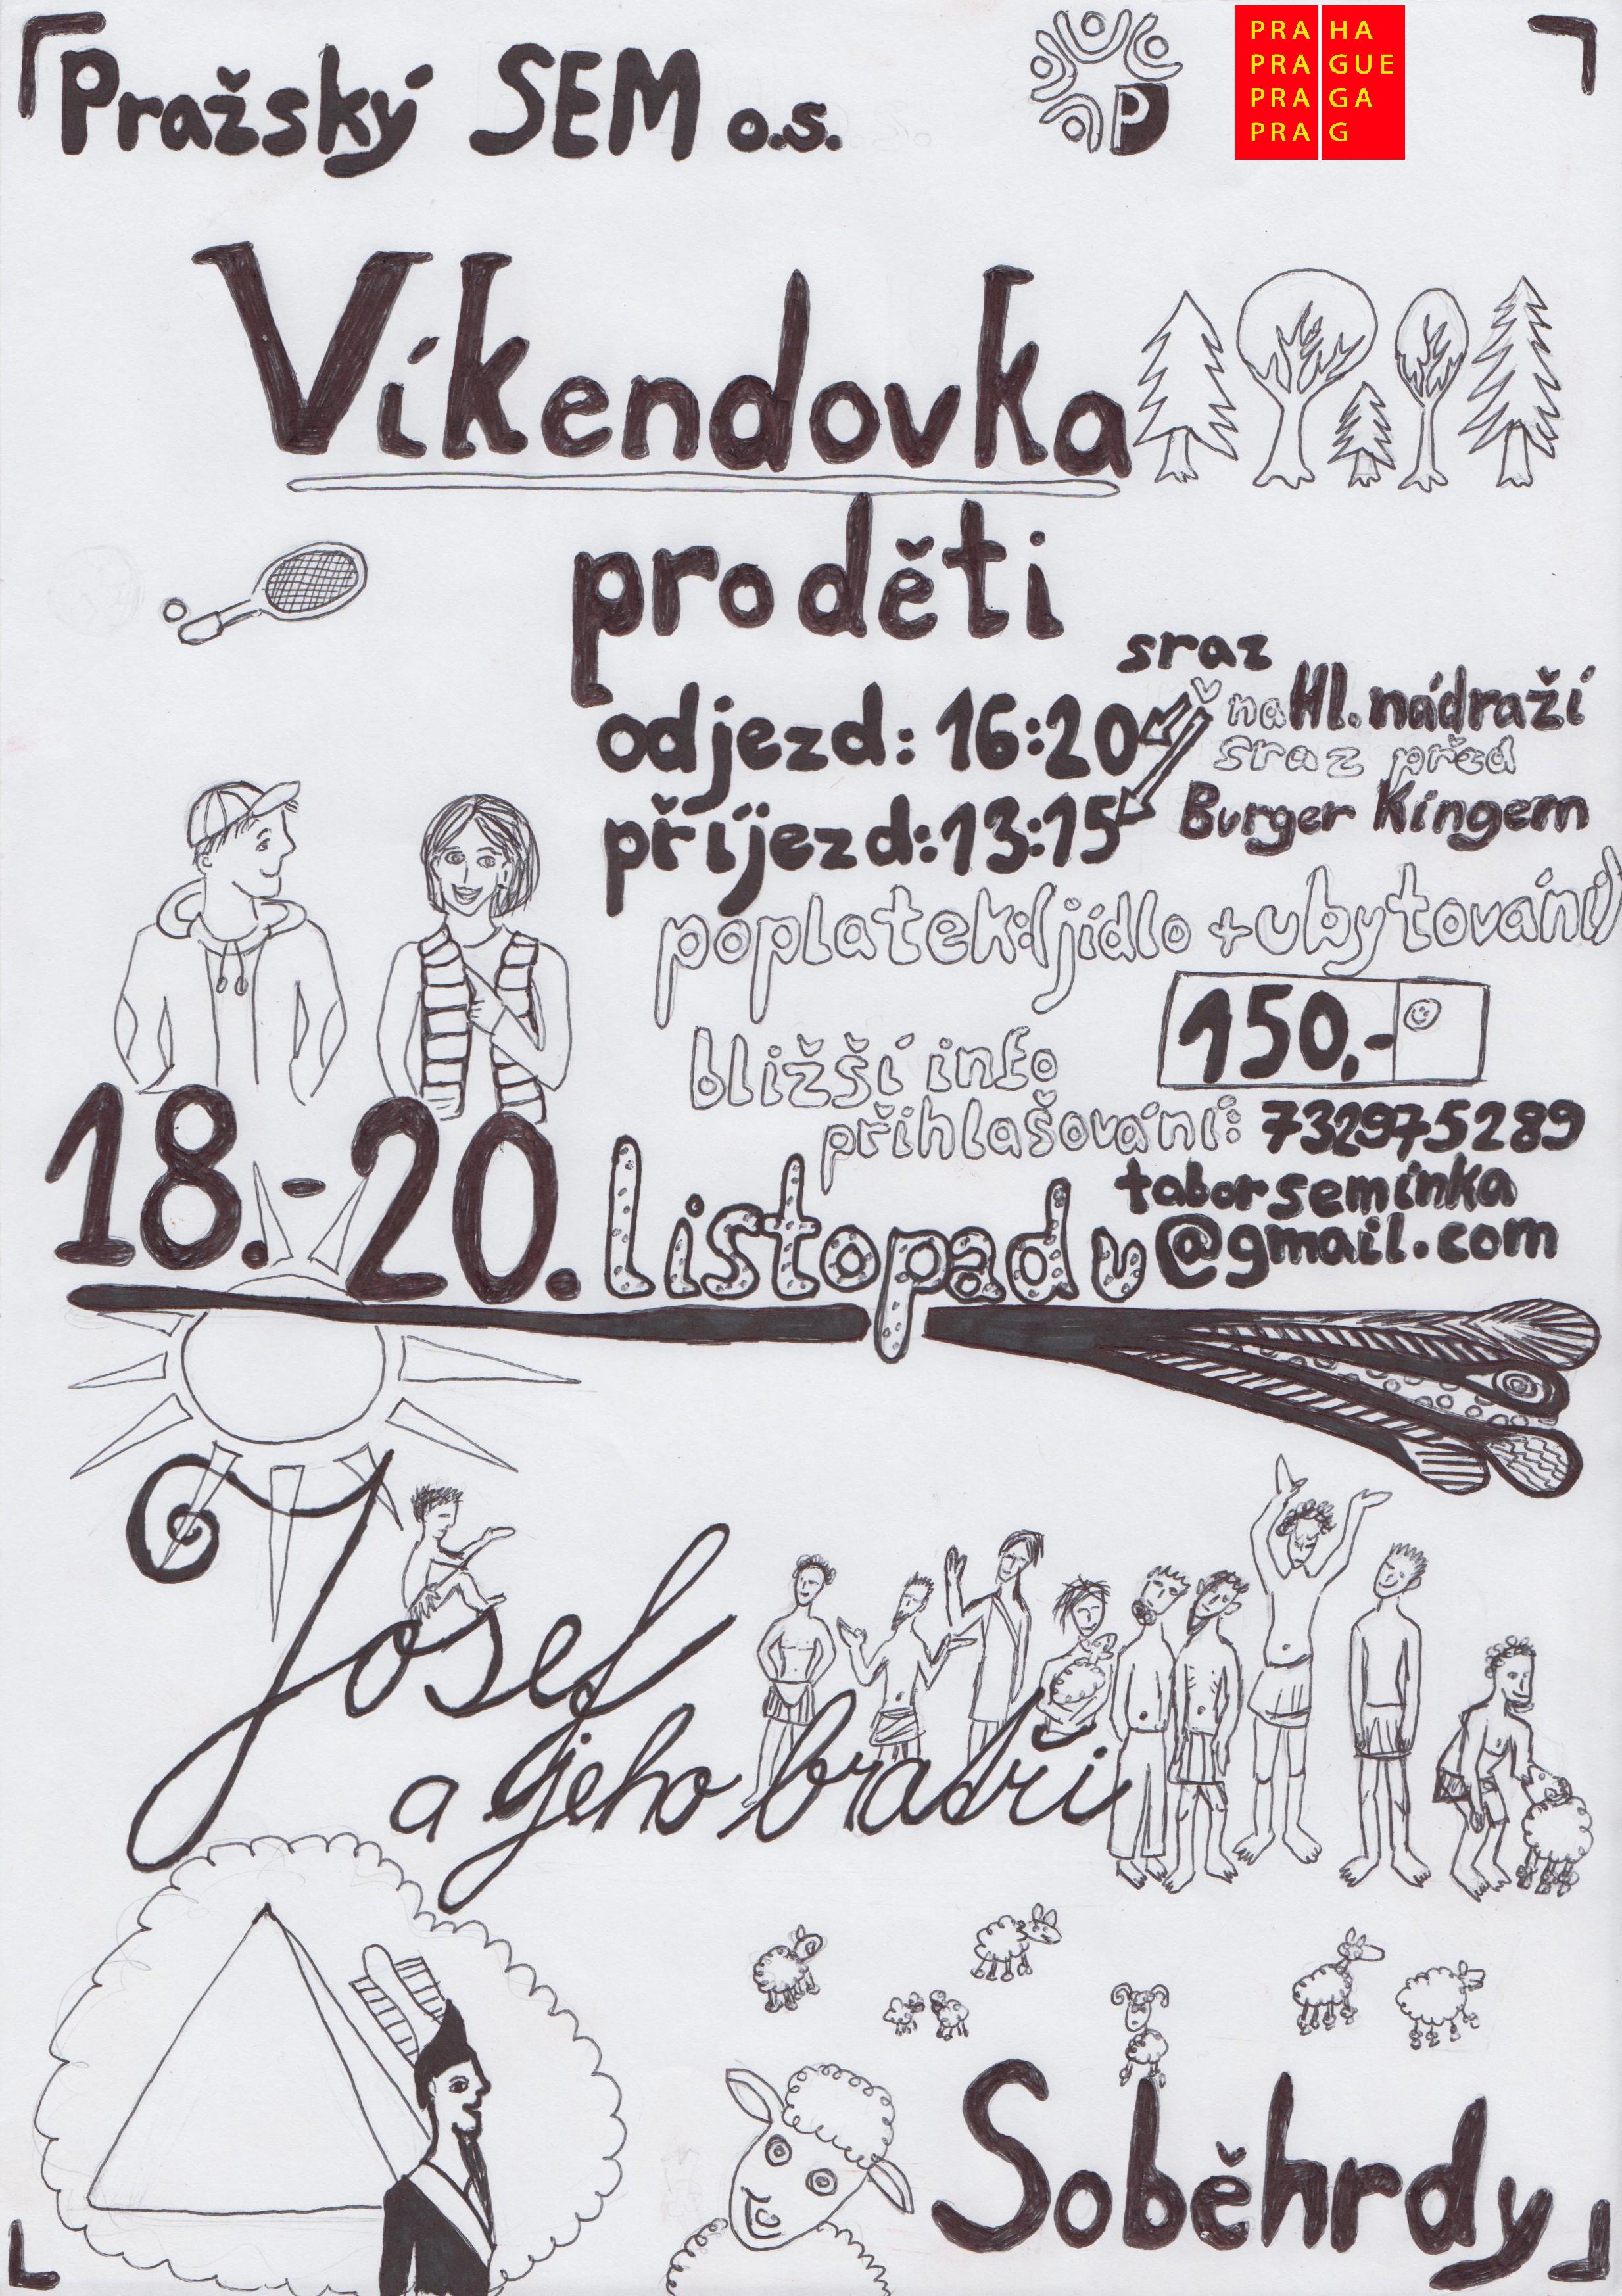 Pražský SEM o.s.
P
PRAHA
PRAGUE
PRAGA
PRAG
Víkendovka
pro děti
sraz
odjezd: 16:20
v na Hl. nádraží
sraz před
příjezd: 13:15
Burger Kingem
poplatek: (jídlo + ubytování)
150,-
bližší info
přihlašování: 732975289
taborseminka
@gmail.com
18.-20. listopadu
Josef
a jeho bratři
Soběhrdy